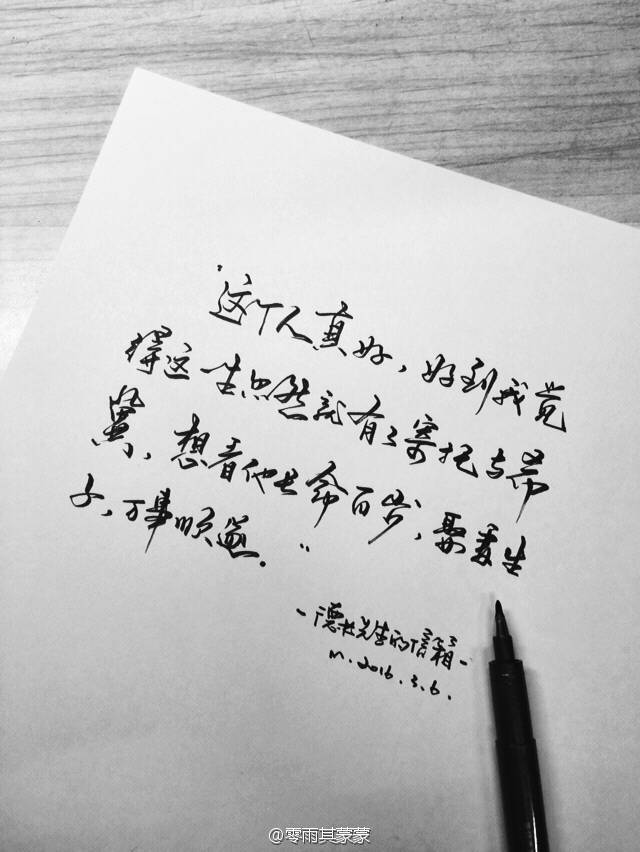 “这个人真好，好到我觉
得这一生忽然就有了寄托与希
冀，想看他长命百岁，娶妻生
子，万事顺遂。”
-德杜先生的信箱-
M.2016.3.6.
@零雨其蒙蒙